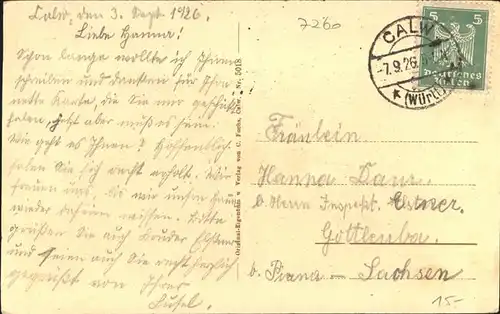 Calw, den 3. Sept. 1926.
Liebe Hanna!
Schon lange wollte ich Ihnen
schreiben und danken für Ihre
nette Karte, die Sie mir geschickt
haben, jetzt aber muß es sein.
Wie geht es Ihnen? Hoffentlich
haben Sie sich recht erholt. Wir
freuen uns, bis wir unsre Hanna
wieder daheim wissen. Bitte
grüßen Sie auch Bruder Elsner
und seien auch Sie recht herzlich
gegrüßt von Ihrer
Lusel.
7260
CALW
-7.9.26.
(Württ)
5 5
Deutsches
Reich
Original-Eigentum u. Verlag von C. Fuchs, Calw, Nr. 5018
Fräulein
Hanna Daur
b. Herrn Inspekt. Elsner.
Gottleuba.
b. Pirna – Sachsen
15-